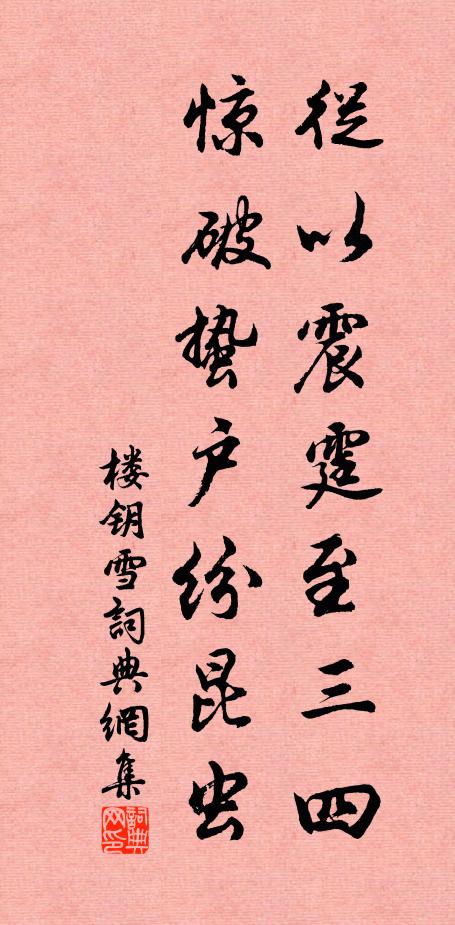 從以震霆至三四
惊破蛰户纷昆虫
楼钥雪詞典網集
詞典网印